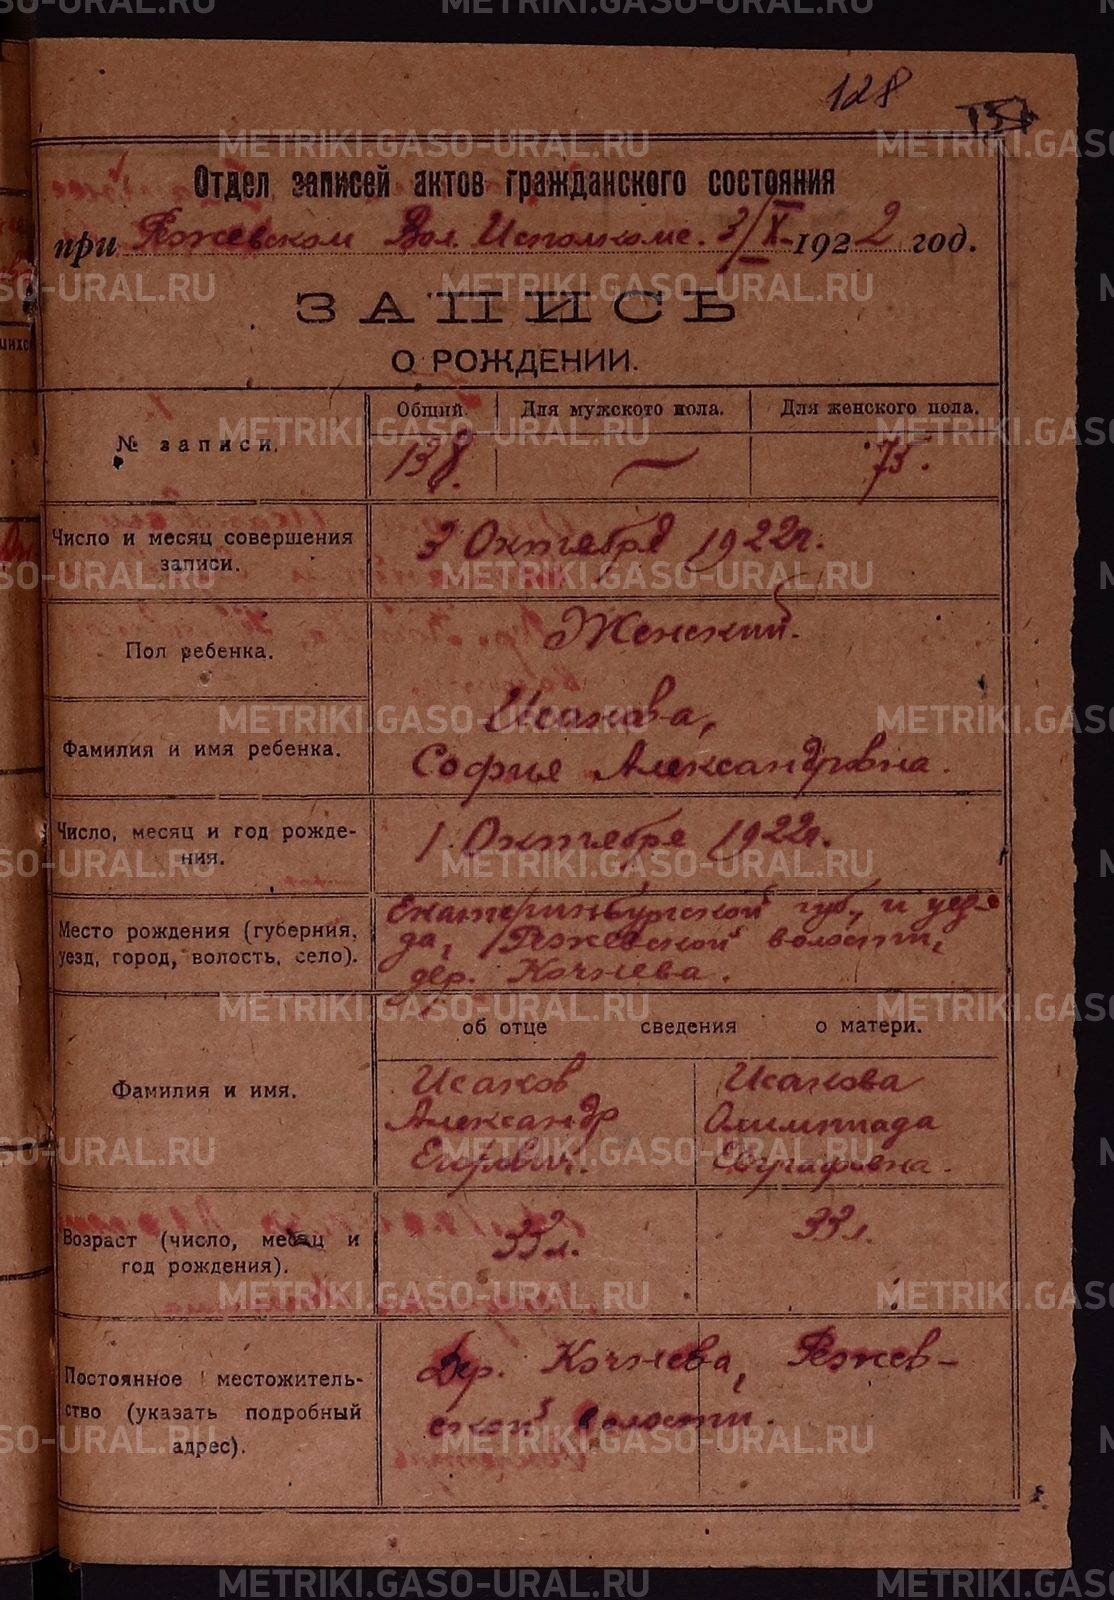 128
Отдел записей актов гражданского состояния
при Режевском Вол. Исполкоме. 3/X 1922 год.
ЗАПИСЬ
О РОЖДЕНИИ.
Общий. Для мужского пола. Для женского пола.
№ записи. 138. — 75.
Число и месяц совершения
записи.
3 Октября 1922г.
Пол ребенка.
Женский.
Фамилия и имя ребенка.
Исакова,
Софья Александровна.
Число, месяц и год рожде-
ния.
1 Октября 1922г.
Место рождения (губерния,
уезд, город, волость, село).
Екатеринбургской губ., и уез-
да, Режевской волости,
дер. Кочнева.
об отце сведения о матери.
Фамилия и имя.
Исаков
Александр
Егорович.
Исакова
Олимпиада
Евграфовна.
Возраст (число, месяц и
год рождения).
33 л.
33 л.
Постоянное местожитель-
ство (указать подробный
адрес).
Дер. Кочнева, Режев-
ской волости.
METRIKI.GASO-URAL.RU